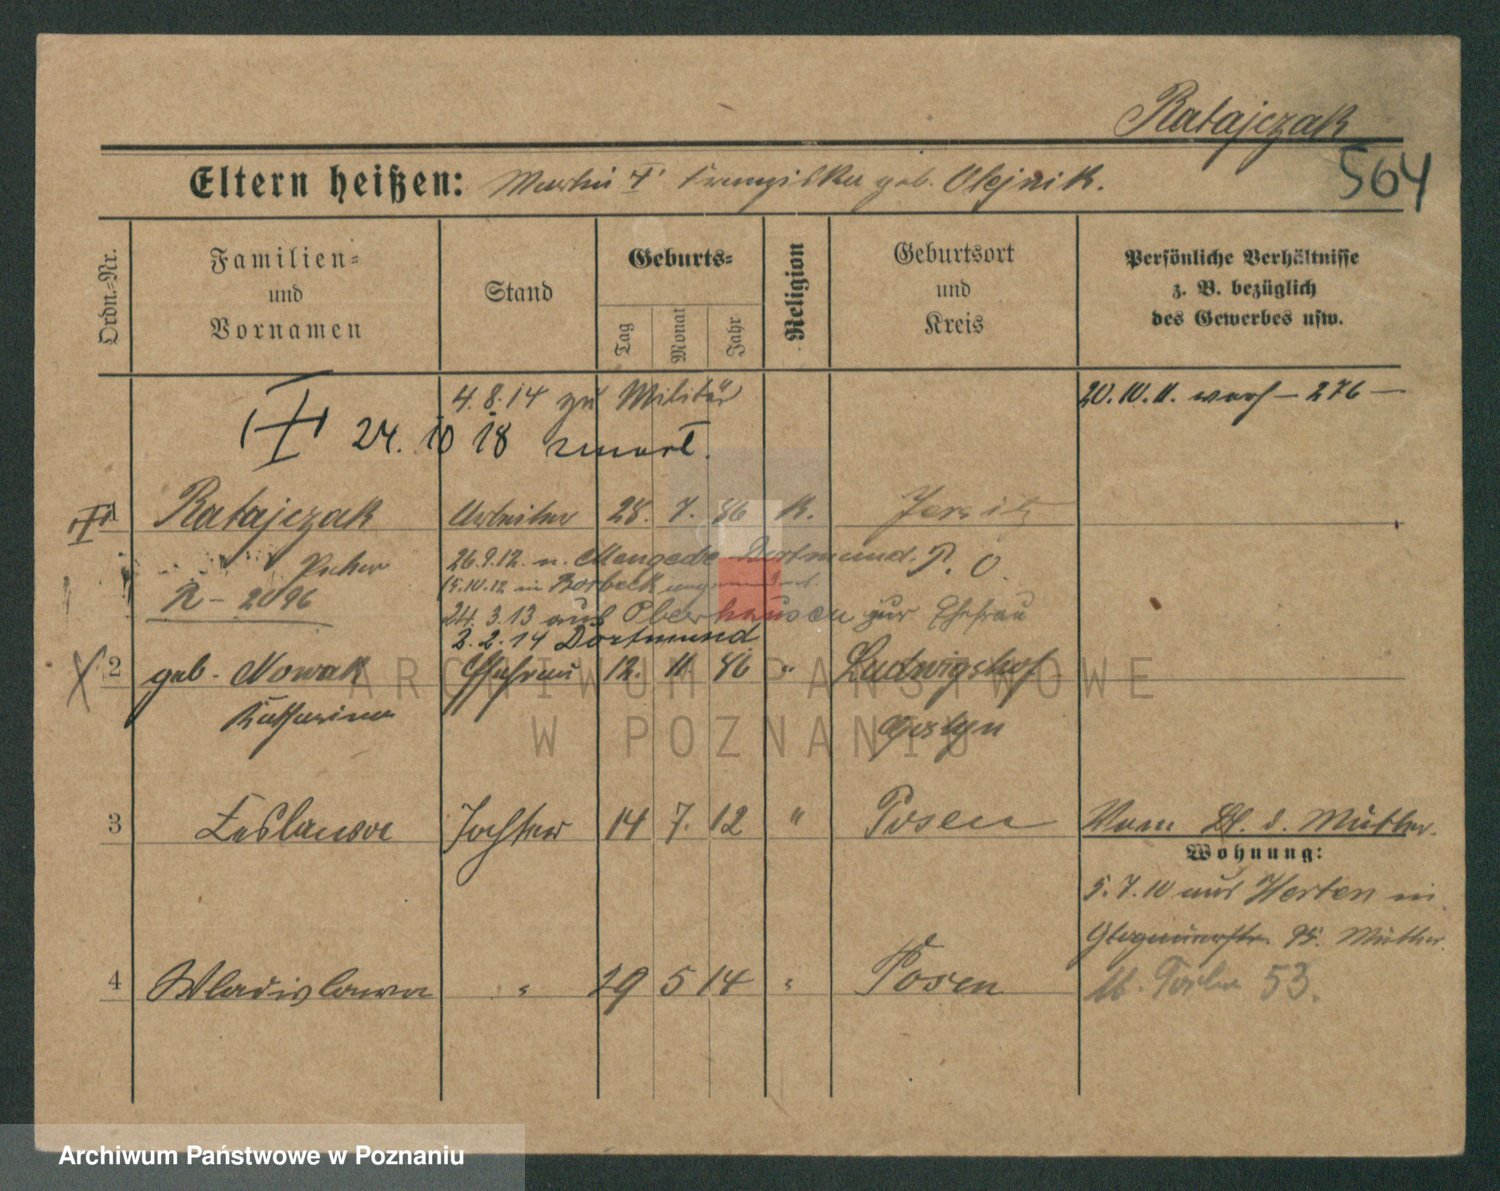 Ratajczak
564
Eltern heißen: Martin † Franziska geb. Olejnik.
Ordn.-Nr.
Familien-
und
Vornamen
Stand
Geburts-
Tag
Monat
Jahr
Religion
Geburtsort
und
Kreis
Persönliche Verhältnisse
z. B. bezüglich
des Gewerbes usw.
4. 8. 14 zu Militär
20. 10. 11. — 276 —
24. 10 18 zmarł.
1 Ratajczak Arbeiter 28. 7. 86 k. Jersitz
Peter
R - 2096
26.9.12. n. Mengede Dortmund. P. O.
15.10.12 in Borbeck
24. 3. 13 aus Oberhausen zur Ehefrau
2. 2. 14 Dortmund
2 geb. Nowak Ehefrau 12. 11 86 " Ludwigshof
Katharina Gostyn
3 Zeslawa Tochter 14 7. 12 " Posen d. Mutter.
Wohnung:
5. 7. 10 aus Herten in
Glogauerstr. 95. Mutter.
4 Wladislawa " 29 5 14 " Posen
53.
ARCHIWUM PAŃSTWOWE
W POZNANIU
Archiwum Państwowe w Poznaniu